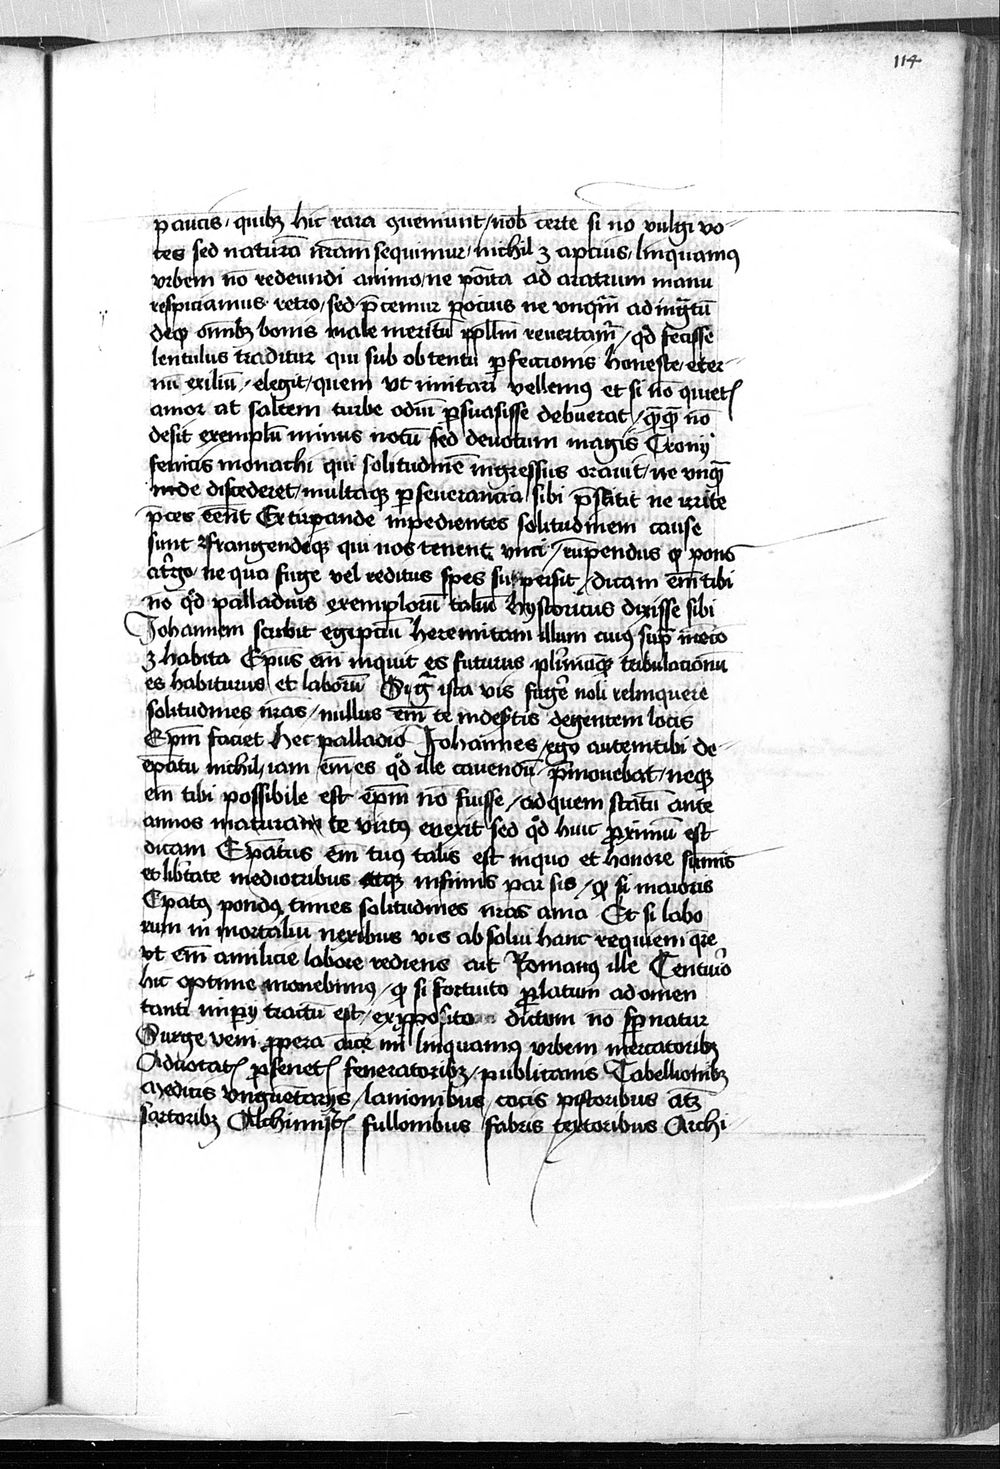 114
paucis / quibꝫ hic rara ꝯueniunt / nob̄ certe si nō vulgi vo-
tes sed naturā nr̄am sequimur / nichil ꝫ aptius / linquamꝰ
vrbem nō redeundi animo / ne po̅ita ad aratrum manu
respiciamus retro / sed p̄cemur pocius ne vnqͣm ad ing̃tū
deqꝫ om̅ibꝫ bonis male meritū pp̄lm reuertam̃ / qd̄ fecisse
lentulus traditur qui sub obtentu ꝑfectionis honeste / eter-
nū exiliū / elegit / quem vt imitari vellemꝰ et si nō quietꝭ
amor at saltem turbe odiū ꝑsuasisse debuerat / qͣqͣ nō
desit exemplū minus notū sed deuotum magis Cronij
fenicis monachi qui solitudinē ingressus orauit / ne vnqͣ
inde discederet / multaqꝫ ꝑseuerancia sibi p̄stitit ne irrite
p̄ces eēnt Extirpande inpedientes solitudinem cause
sunt ꝯfrangendeqꝫ qui nos tenent vnci / rūpendus qꝫ pons
at̓go / ne qua fuge vel reditus spes supersit / dicam em̄ tibi
nō qd̓ palladius exemplorū taliū hystoricus dixisse sibi
Johannem scribit egipciū heremitam illum cuiꝰ sup̄ mēcio
ꝫ habita Ep̄us em̄ inquit es futurus pl̓imāqꝫ tribulacionū
es habiturus et laborū Si g̃ ista vis fug̓e noli relinquere
solitudines nr̄as / nullus em̄ te indesertis degentem locis
Ep̄m faciet hec palladio Johannes / ego autem tibi de-
ep̄atu nichil / iam em̄ es qd̓ ille cauendū p̄monebat / neqꝫ
em̄ tibi possibile est ep̄m nō fuisse / ad quem statū ante
annos maturam te virtꝰ euexit sed qd̓ huic ꝓximū est
dicam Ep̄atus em̄ tuꝰ talis est inquo et honore sūmis
et lib̓tate mediocribus atqꝫ infimis par sis / qꝫ si maioris
Ep̄atꝰ pondꝰ times solitudines nr̄as ama Et si labo
rum in mortaliū nexibus vis absolui hanc requiem qͣre
vt em̄ amilicie labore rediens ait Romanꝰ ille Centurio
hic optime manebimus / qꝫ si fortuito ꝓlatum ad omen
tanti imꝑij tractū est / ex ꝓposito dictum nō sp̄natur
Surge veni ꝓpera dicer mi linquamꝰ vrbem mercatoribꝫ
Aduocatꝭ ꝓsenetꝭ feneratoribꝫ / publicanis Tabellionibꝫ
Medicis vnguētarijs / lanionibus / cocis pistoribus atqꝫ
sartoribꝫ Alchimistꝭ fullonibus fabris textoribus Archi-